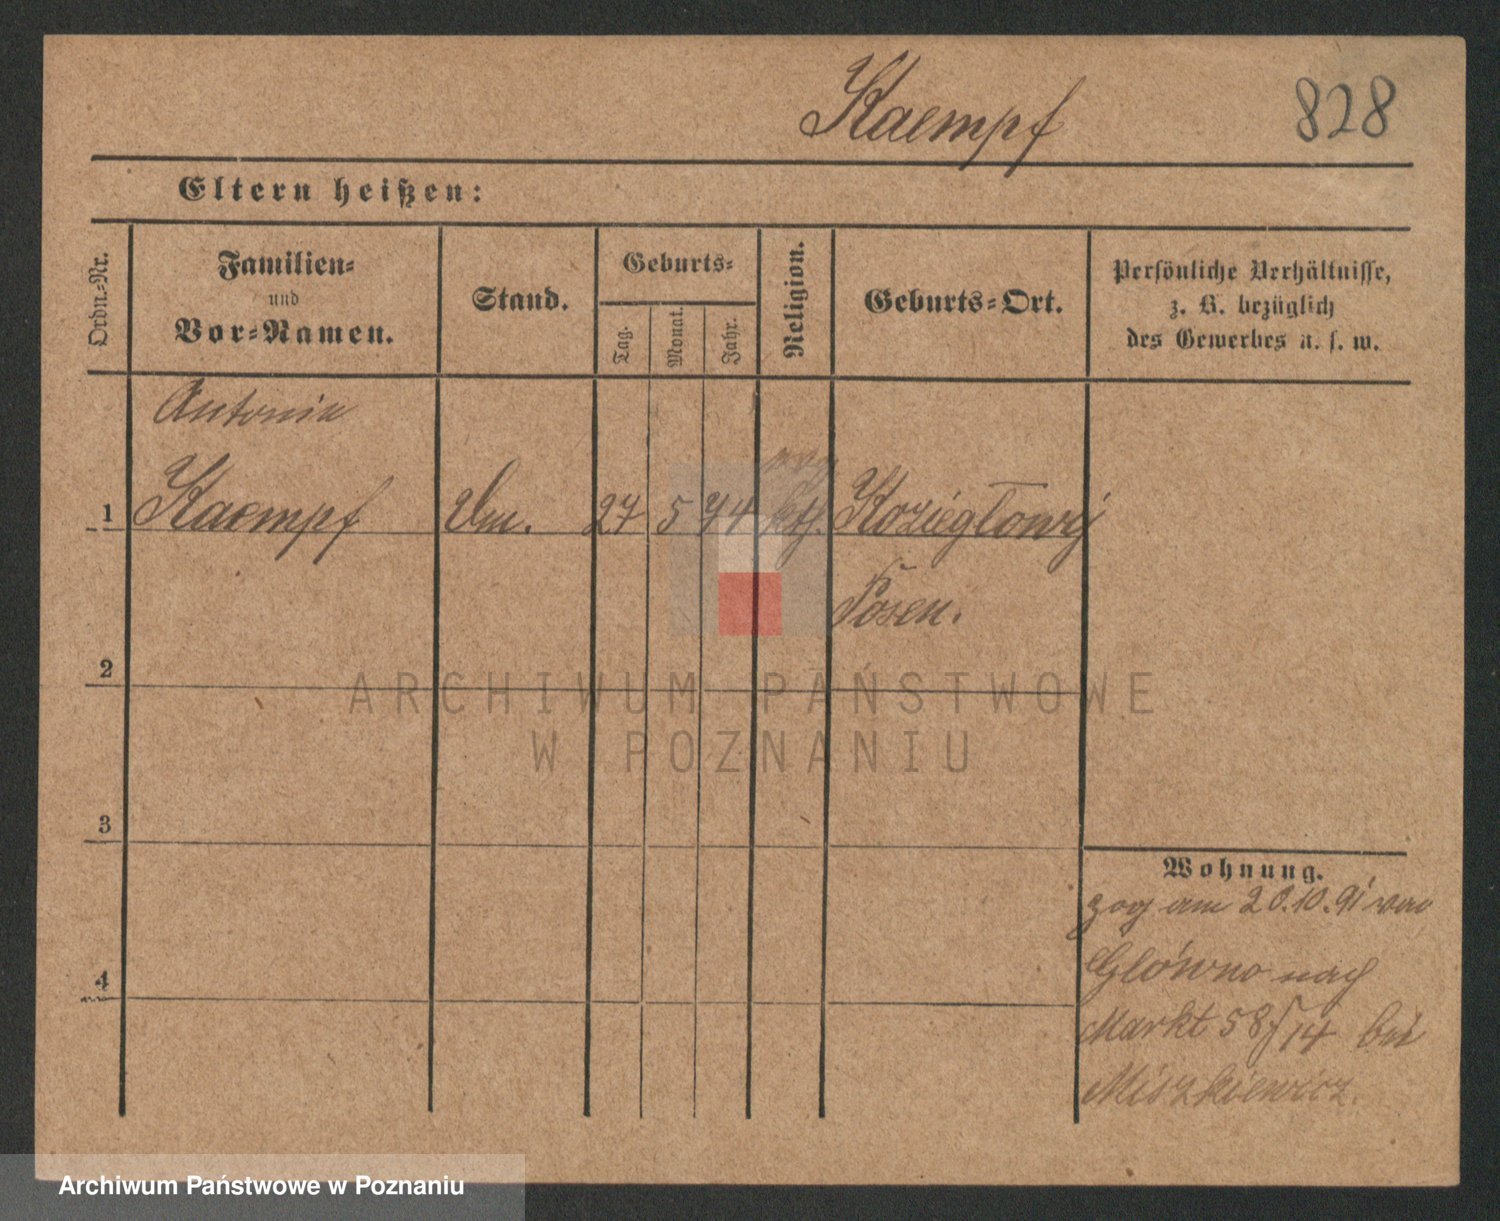 Kaempf 828
Eltern heißen:
Ordn.-Nr.
Familien-
und
Vor-Namen.
Stand.
Geburts-
Tag.
Monat.
Jahr.
Religion.
Geburts-Ort.
Persönliche Verhältnisse,
z. B. bezüglich
des Gewerbes u. s. w.
Antonie
1 Kaempf 27 5 74 kth. Koziegłowy
Posen.
2
3
4
Wohnung.
zog am 20.10.91 von
Główno nach
Markt 58/14 bei
Miszkiewicz.
ARCHIWUM PAŃSTWOWE
W POZNANIU
Archiwum Państwowe w Poznaniu